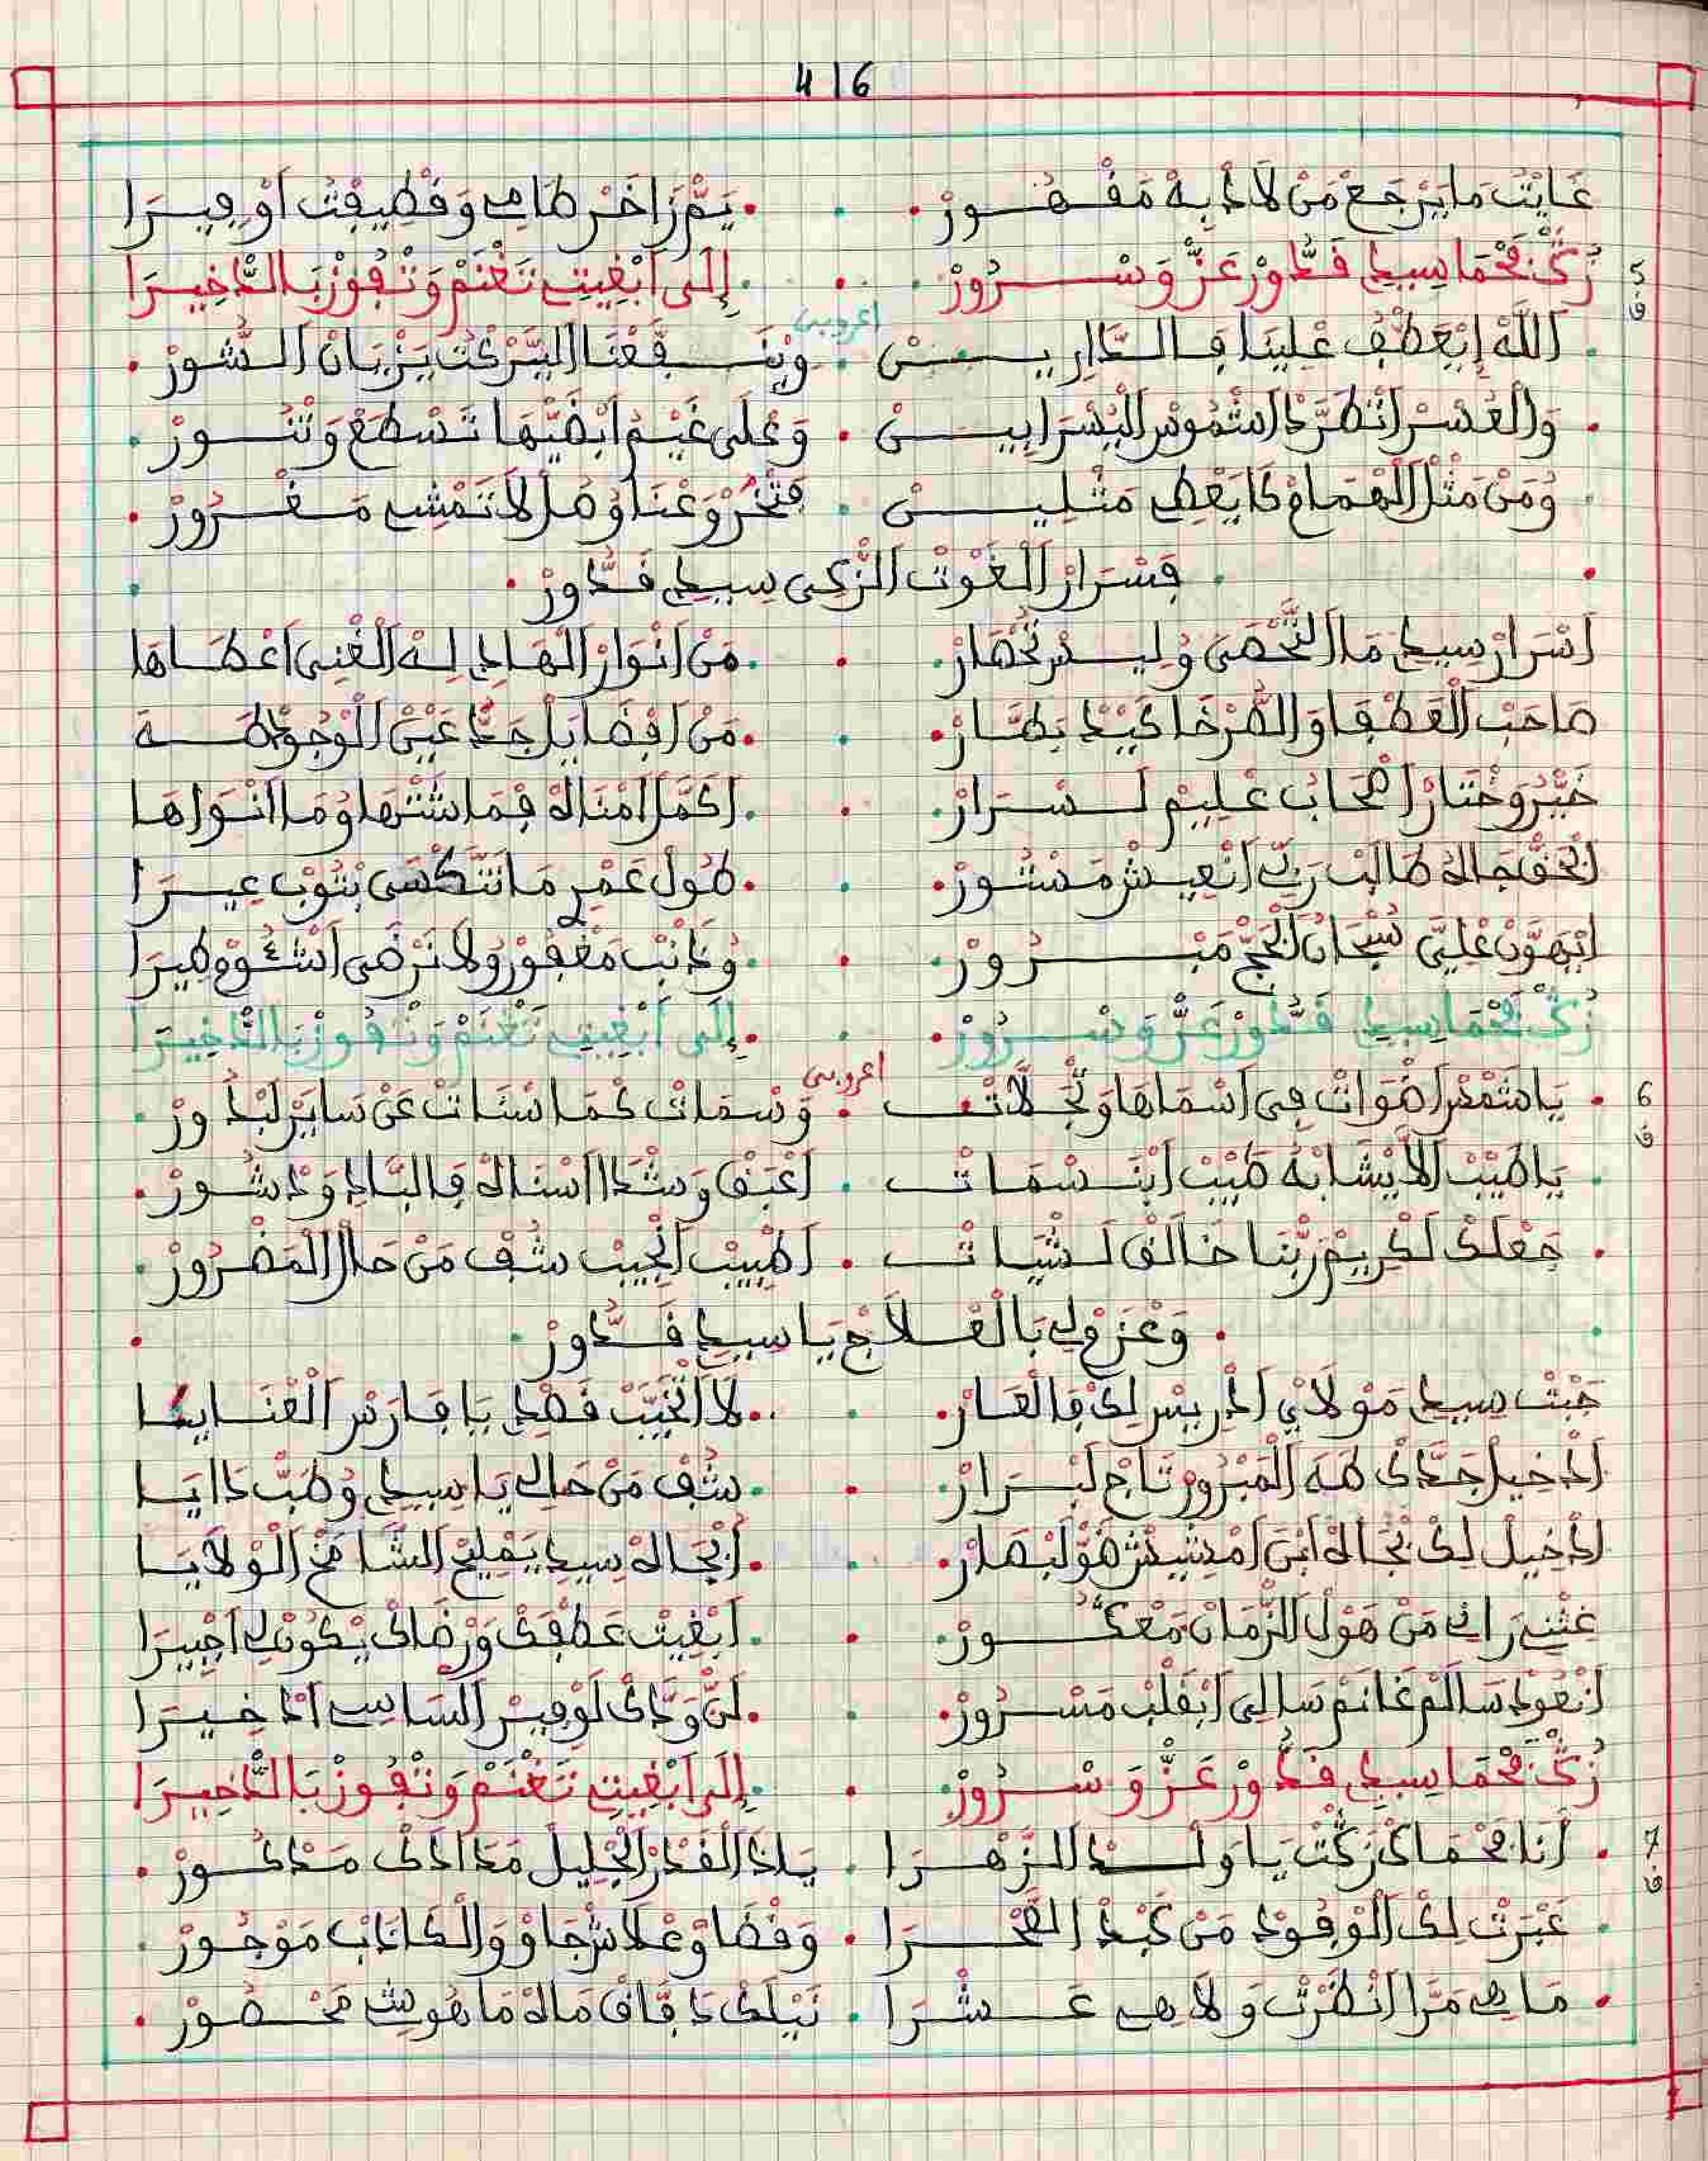 416
غَايْتْ مَا يَرْجَعْ مَنْ لَاذْ بِهْ مَقْهُورْ . يَمّْ زَاخَرْ طَامِي وَقْطِيفْتْ اَوْفِيرَا
5 ق زُكّْ نحْمَا سِيدِي قَدُّورْ عَزّْ وَسْرُورْ . إِلَى اَبْغِيتِ تَغْنَمْ وَتْفُوزْ بَالدّْخِيرَا
اعروبي
اَللَّهْ إِيْعَطْفْ عْلِينَا فَالدَّارِيسْ . وْيَنَفَّعْنَا الْبَرْكْتْ يَزْيَانْ الشُّورْ
وَالْعُسْرْ اَنْطَرَّدْ اَشْمُوسْ الْيُسْرَا بِيسْ . وَعْلَى غَيْمْ اَبْضَيّْهَا تَسْطَعْ وَتْنُورْ
وُمَنْ مَثْلْ الْهَمَامْ كَا يَعْطِي مَتْلِيسْ . فَتْخُرْ وَعْنَاوْ هَلْ لَا تَمْشِي مَغْرُورْ
فَسْرَارْ الْغَوْتْ الزَّكِي سِيدِي قَدُّورْ
اَسْرَارْ سِيدِي مَا الْتَّحْصَى وُلِيسْ تَحْصَارْ . مَنْ اَنْوَارْ الْهَادِي لِهْ الْغْنِي اَعْطَاهَا
صَاحَبْ الْعَطْفَا وَالصَّرْخَا كَبْدْ بَصَّارْ . مَنْ اَفْضَايَلْ جَدّْ عَيْنْ الْوْجُودْ طَهَ
خَيّْرُ وَخْتَارْ اَصْحَابْ عْلِيمْ لَسْرَارْ . اَكَمَّلْ اَمْنَاهْ فِمَا شْتْهَا وُمَا اَنْوَاهَا
اَبْحَقّْ جَاهْ طَالَبْ رَبِّي اَنْعِيشْ مَسْتُورْ . طُولْ عَمْرِ مَا نَتّْكْسَى بْتُوبْ عِيرَا
اِيْهَوَّنْ عْلِيَّ سُبْحَانْ الْحَجّْ مَبْرُورْ . وُذَانْبْ مَغْفُورْ وُلَا نَرْضَى اَشْئُومْ طِيرَا
زُكّْ نحْمَا سِيدِي قَدُّورْ عَزّْ وَسْرُورْ . إِلَى اَبْغِيتِ تَغْنَمْ وَتْفُوزْ بَالدّْخِيرَا
اعروبي
6 ق يَا شَمْسْ اَضْوَاتْ فِي اَسْمَاهَا وَتْجَلَّاتْ . وَسْمَاتْ كْمَا سْنَاتْ عَنْ سَايَرْ لَبْدُورْ
يَا طَيَّبْ لَا يْشَابْهُ طَيْبْ اَبْنَسْمَاتْ . اَعْبَقْ وَشْدَا اَسْنَاهْ فَالْبَّادِي وَدْشُورْ
جَعْلَكْ لَكْرِيمْ رَبّْنَا خَالَقْ لَشْيَاتْ . اَطْبِيبْ اَنْجِيبْ شْفْ مَنْ حَالْ الْمَضْرُورْ
وَعْزَمْ لِي بَالْعْلَاجْ يَا سِيدِي قَدُّورْ
جَبْتْ سِيدِي مَوْلَايْ اَدْرِيسْ لِكْ فَالْعَارْ . لَا اَتْخَيَّبْ قَصْدِي يَا فَارَسْ الْعْنَايَا
اَدْخِيلْ جَدَّكْ طَهَ الْمَبْرُورْ تَاجْ لَبْرَارْ . شْفْ مَنْ حَالِي يَا سِيدِي وُطَبّْ دَايَا
اَدْخِيلْ لِكْ بْجَاهْ اَبْنْ اَمْشِيشْ ضَوّْ لَبْصَارْ . اَبْجَاهْ سِيدِ يَمْلِيحْ الشَّامَخْ الْوْلَايَا
غِتْنِي رَانِي مَنْ هَوْلْ الزّْمَانْ مَعْكُورْ . اَبْغِيتْ عَطْفَكْ وَرْضَاكْ يْكُونْ لِي اَجْبِيرَا
اَنْعُودْ سَالَمْ غَانَمْ سَالِي اَبْقَلْبْ مَسْرُورْ . لَنّْ وَدَّكْ لَوْفِيرْ السَاسِي اَدْخِيرَا
زُكّْ نحْمَا سِيدِي قَدُّورْ عَزّْ وَسْرُورْ . إِلَى اَبْغِيتِ تَغْنَمْ وَتْفُوزْ بَالدّْخِيرَا
7 ق اَنَا نحْمَاكْ زُكْتْ يَا وَلْدْ الزَّهْرَا . يَاذَا الْقَدْرْ الْجْلِيلْ مَدَا ادَكْ مَدْكُورْ
عَبْرَتْ لِكْ الْوْفُودْ مَنْ كَبْدْ الصَّحْرَا . وَقْضَاوْ عْلَاشْ جَاوْ وَالْكَادَبْ مَوْجُورْ
مَا هِي مَرَّا اَنْظَرْتْ وَلَا هِي عَشْرَا . نَيْلَكْ دَافَّاقْ مَالَهْ مَا هُوشِي مَحْصُورْ